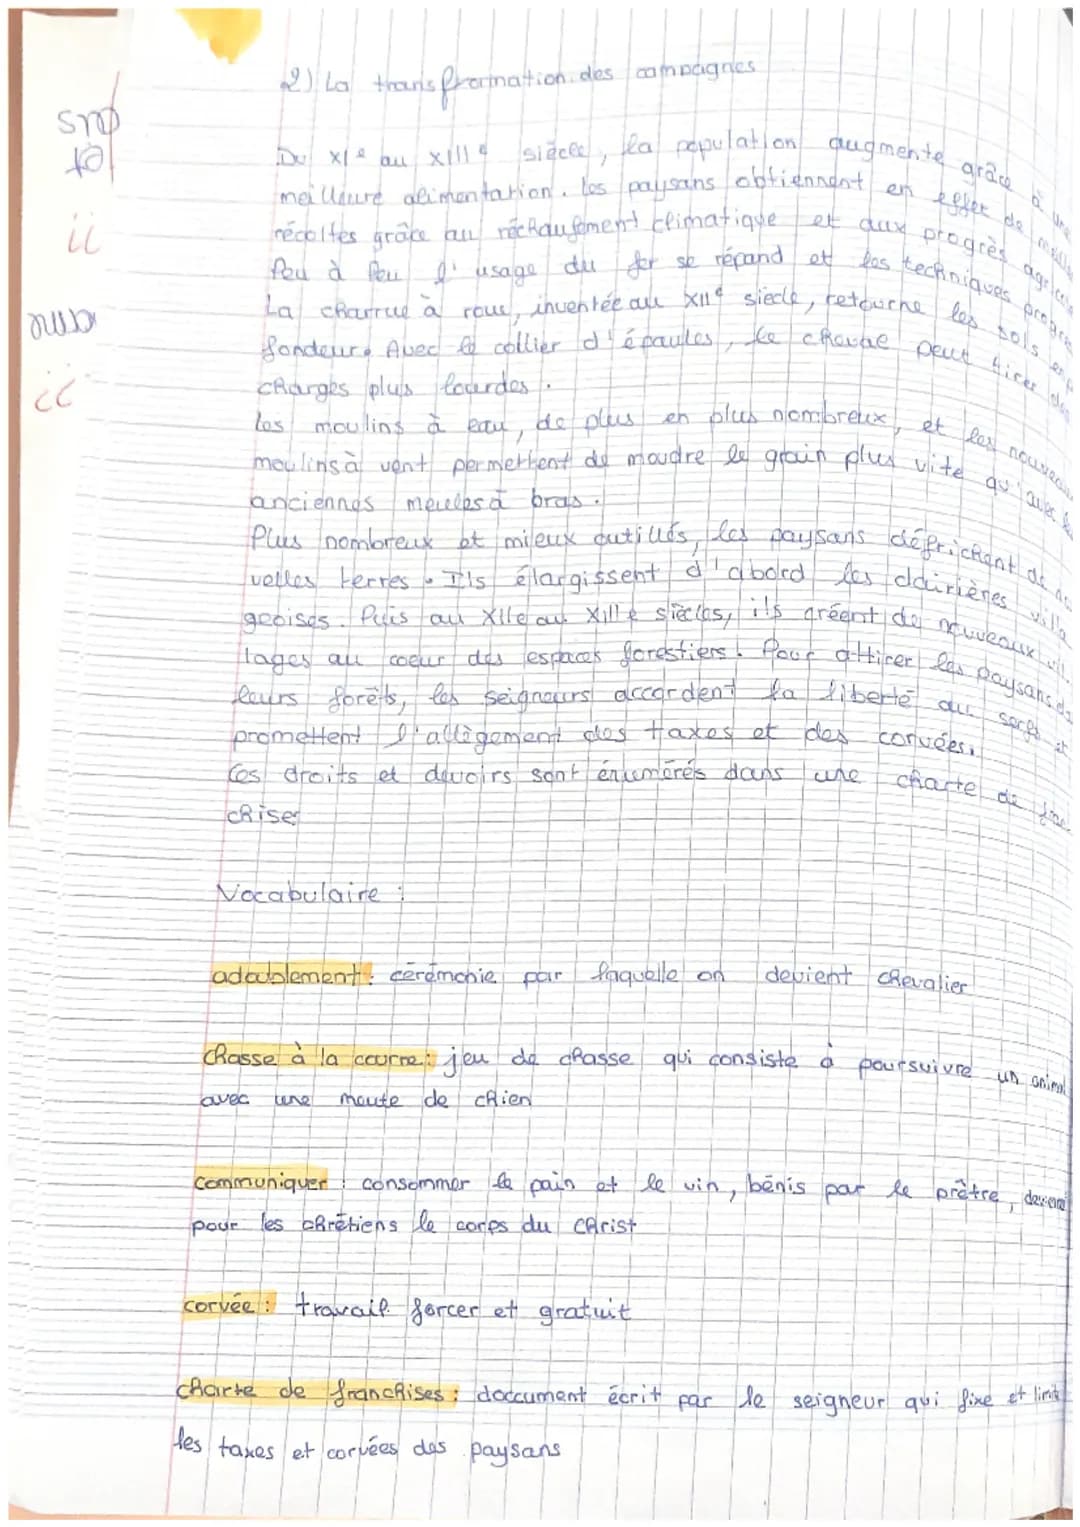 2) La transformation des campagnes
Du XIe au XIIIe siècle, la population augmente grâce à une
meilleure alimentation. Les paysans obtiennent en effet de
récoltes grâce au réchaufement climatique et aux progrès
Peu à Peu l'usage du fer se répand et les techniques
La charrue à roue, inventée au XIIe siècle, retourne les sols en
fondeur. Avec le collier d'épaules, le cheval peut tirer des
charges plus lourdes.
Les moulins à eau, de plus en plus nombreux, et les nouveaux
moulins à vent permettent de moudre le grain plus vite qu'avec les
anciennes meules à bras.
Plus nombreux et mieux outillés, les paysans défrichent de
velles terres. Ils élargissent d'abord les clairières villa
geoises. Puis au XIIe au XIIIe siècles, ils créent de nouveaux vil.
lages au coeur des espaces forestiers. Pour attirer les paysans
leurs forêts, les seigneurs accordent la liberté aux serfs et
promettent l'allègement des taxes et des corvées.
Ces droits et devoirs sont énumérés dans une charte de
chises
Vocabulaire :
adoublement : cérémonie par laquelle on devient chevalier
Chasse à la courre : jeu de chasse qui consiste à poursuivre un animal
avec une meute de chien
Communiquer : consommer le pain et le vin, bénis par le prêtre,
pour les chrétiens le corps du Christ
corvée : travail forcer et gratuit
Charte de franchises : doccument écrit par le seigneur qui fixe et limite
les taxes et corvées des paysans